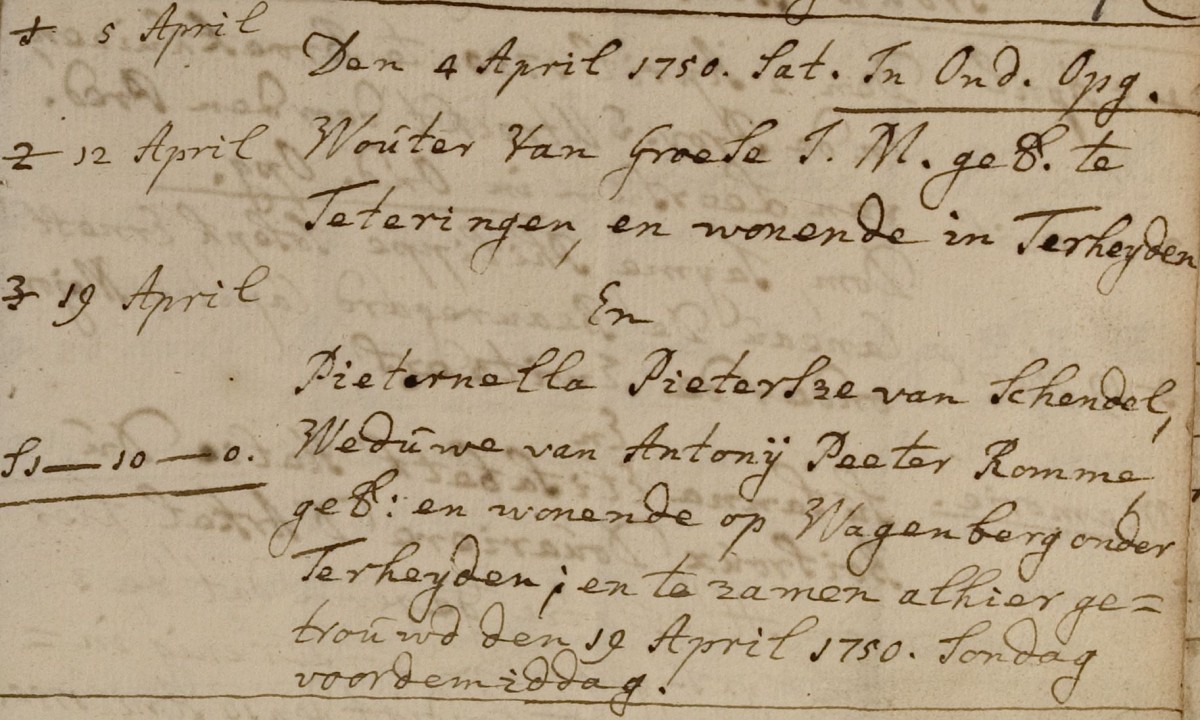 1 5 April
Den 4 April 1750. Sat. In Ond. Opg.
2 12 April
Woúter Van Groese J. M. geb. te
Teteringen, en wonende in Terheyden
3 19 April
En
Pieternella Pietersze van Schendel,
Wedúwe van Antonÿ Peeter Romme,
f1—10—0.
geb: en wonende op Wagenberg onder
Terheyden; en te zamen alhier ge=
troúwd den 19 April 1750. Sondag
voordemiddag.